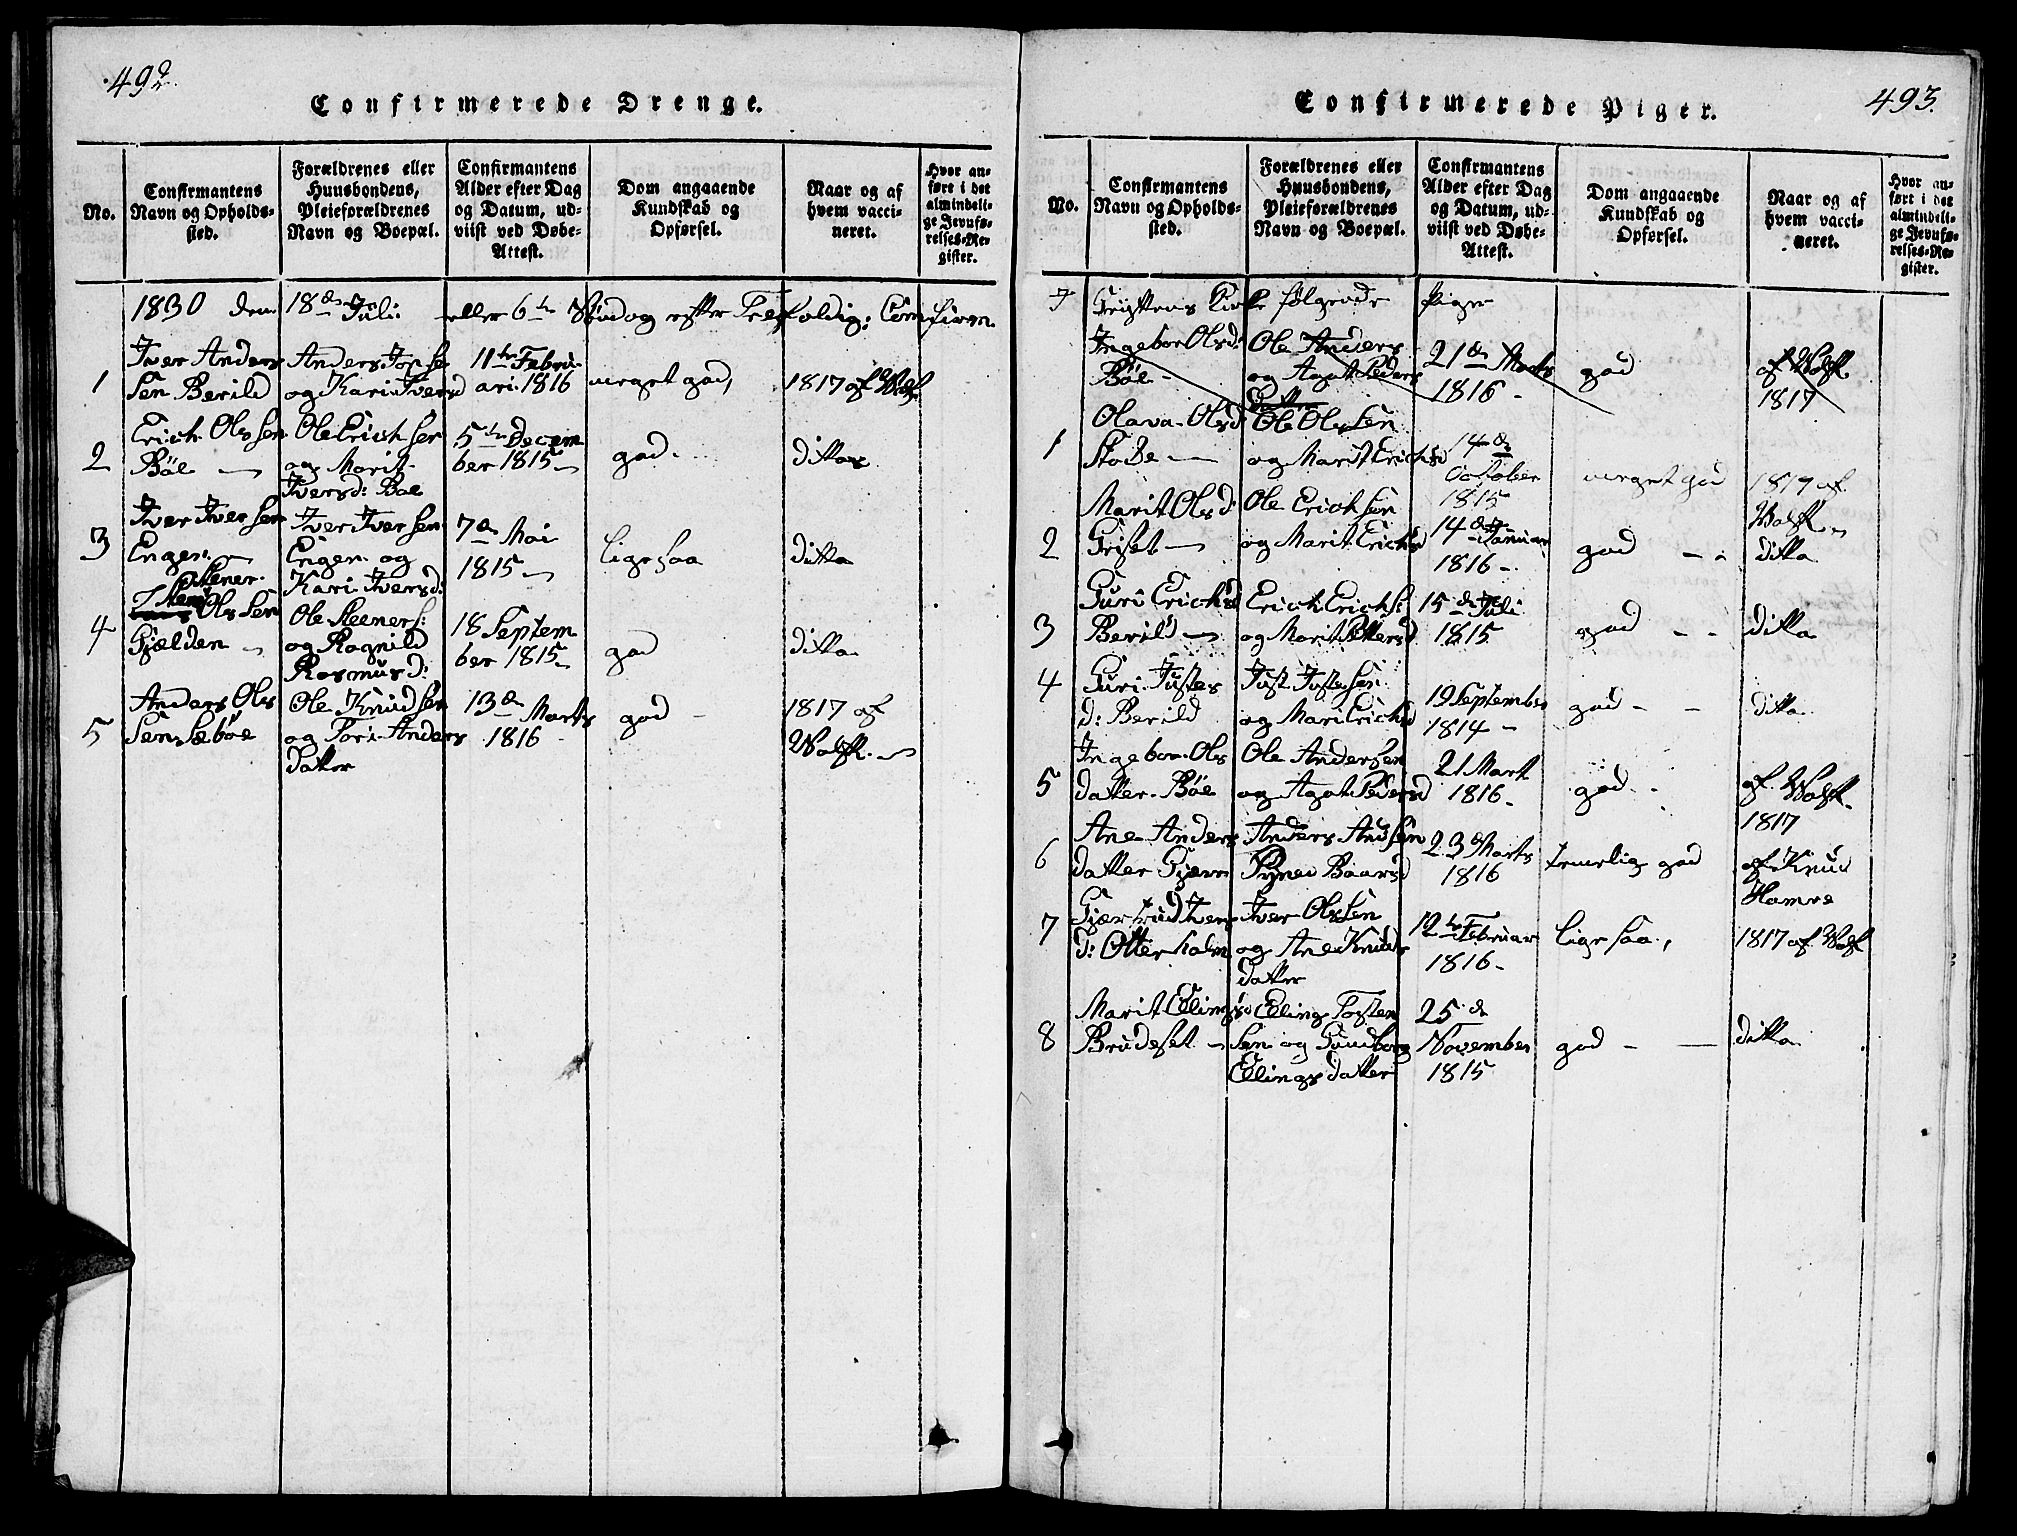 492.
Confirmerede Drenge.
No.
Confirmantens
Navn og Opholds-
sted.
Forældrenes eller
Huusbondens,
Pleieforældrenes
Navn og Boepæl.
Confirmantens
Alder efter Dag
og Datum, ud-
viist ved Døbe-
Attest.
Dom angaaende
Kundskab og
Opførsel.
Naar og af
hvem vacci-
neret.
Hvor an-
ført i det
almindeli-
ge Jevnfø-
relses-Re-
gister.
1830 den 18de Juli eller 6te Søndag efter Trefoldig: Confirm.
1
Iver Anders
Sen Berild
Anders
og Kari Iversd
11te Febru
ari 1816
meget god,
1817 af
2
Erich Olssen
Böe
Ole Erichsen
og Marit
Iversd: Böe
5te Decem
ber 1815
god
ditto
3
Iver Iversen
Engen
Iver Iversen
Engen og
Kari Iversd:
7de Mai
1815
ligesaa
ditto
4
Stener
Olssen
Gjelden
Ole Steeners:
og Ragnild
Rasmusd:
18 Septem
ber 1815
god
ditto
5
Anders Ols
Sen Sæböe
Ole Knudsen
og Anders
datter
13de Marts
1816
god
1817 af
Wolff.
493.
Confirmerede Piger.
No.
Confirmantens
Navn og Opholds-
sted.
Forældrenes eller
Huusbondens,
Pleieforældrenes
Navn og Boepæl.
Confirmantens
Alder efter Dag
og Datum, ud-
viist ved Døbe-
Attest.
Dom angaaende
Kundskab og
Opførsel.
Naar og af
hvem vacci-
neret.
Hvor an-
ført i det
almindeli-
ge Jevnfø-
relses-Re-
gister.
Kirke følgende Piger
Ingebor Olsd:
Böe
Ole Anders
og Agat Peders
datter
21de Marts
1816
god
af Wolff
1817
1
Olava Olsd
Ole Olssen
og Marit Erichsd
14de
October
1815
meget god
1817 af
Wolff
2
Marit Olsd:
Griset
Ole Erichsen
og Marit Erichsd
14de Januar
1816
god
ditto
3
Guri Erichsd
Berild
Erich Erichs:
og Marit Pettersd
15de Juli
1815
god
ditto
4
Guri Justes
d: Berild
Just Justesen
og Mari Erichsd
19 September
1814
god
ditto
5
Ingebor Ols
datter Böe
Ole Andersen
og Agat Pedersd
21 Mart
1816
god
af Wolff.
1817
6
Ane Anders
datter
Anders Andsen
Baarsd
23de Marts
1816
temelig god
af Knud
Hamre
7
Gjertrud Ivers
d: Otterholm
Iver Olssen
og Ane Knuds
datter
12te Februar
1816
ligesaa,
1817 af Wolff
8
Marit Ellingsd
Brudeset
Elling Tosten
Sen og Gunborg
Ellings datter
25de
November
1815
god
ditto